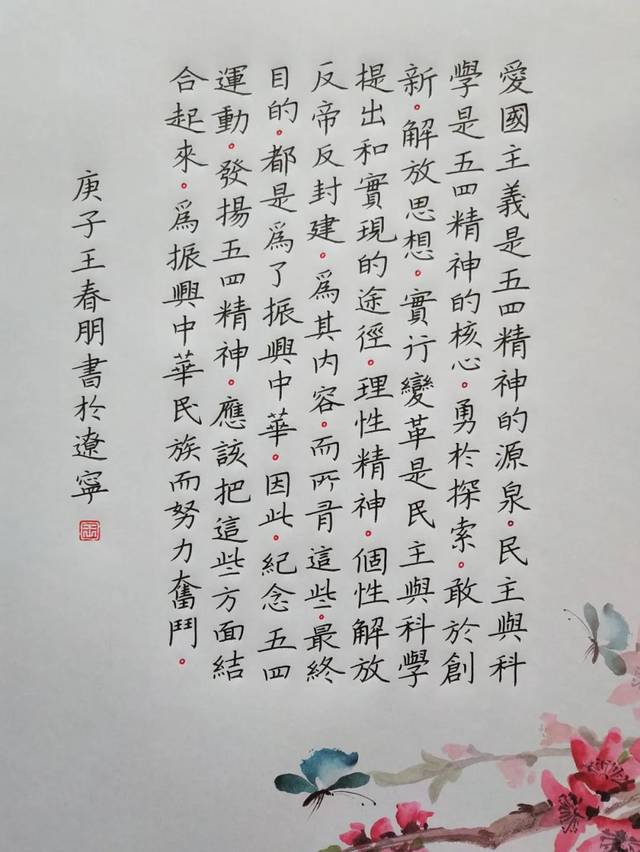 愛國主義是五四精神的源泉。民主與科
學是五四精神的核心。勇於探索。敢於創
新。解放思想。實行變革是民主與科學
提出和實現的途徑。理性精神。個性解放
反帝反封建。爲其内容。而所有這些。最終
目的。都是爲了振興中華。因此。紀念五四
運動。發揚五四精神。應該把這些方面結
合起來。爲振興中華民族而努力奮鬥。
庚子王春朋書於遼寧